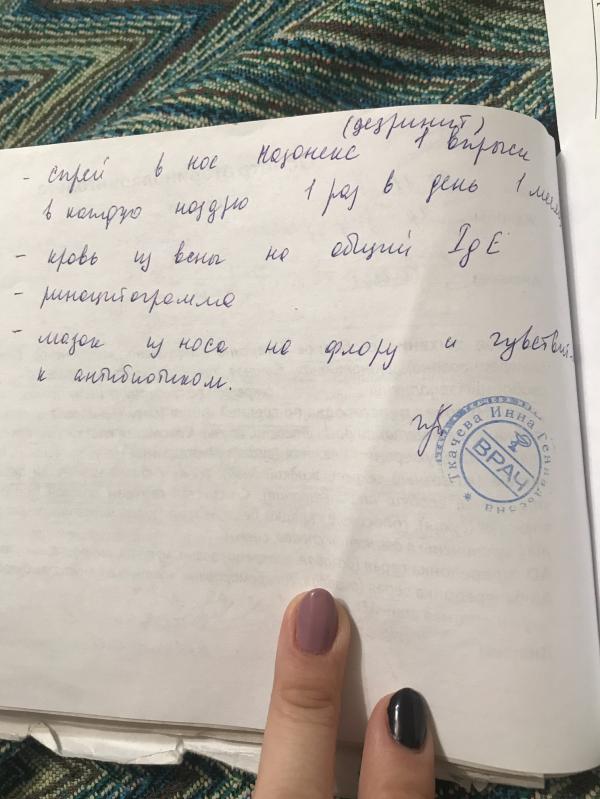 (дезринит)
- спрей в нос Назонекс 1 впрыск
в каждую ноздрю 1 раз в день 1 меся
- кровь из вены на общий IgE
- риноцитограмма
- мазок из носа на флору и чувствит.
к антибиотикам.
Ткачева Инна Геннадьевна
ВРАЧ